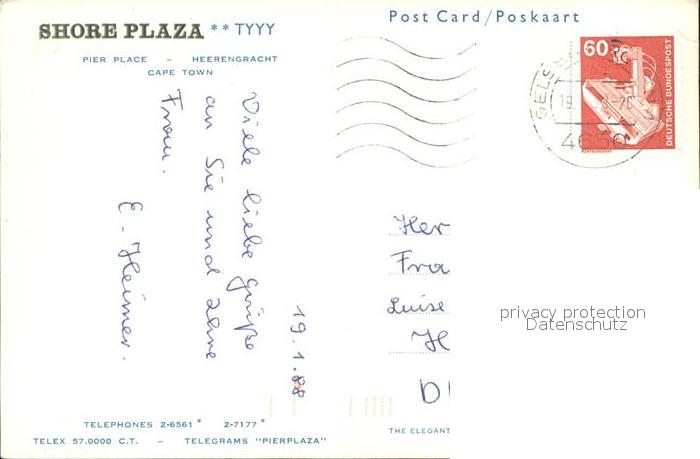 SHORE PLAZA ** TYYY
PIER PLACE – HEERENGRACHT
CAPE TOWN
Post Card/Poskaart
60
DEUTSCHE BUNDESPOST
GELS
19
-20
4650
19.1.88
Viele liebe Grüße
an Sie und Ihre
Frau.
E. Heimer.
Her
Fra
Luise
H
D
privacy protection
Datenschutz
TELEPHONES 2-6561* 2-7177*
TELEX 57.0000 C.T. – TELEGRAMS "PIERPLAZA"
THE ELEGANT